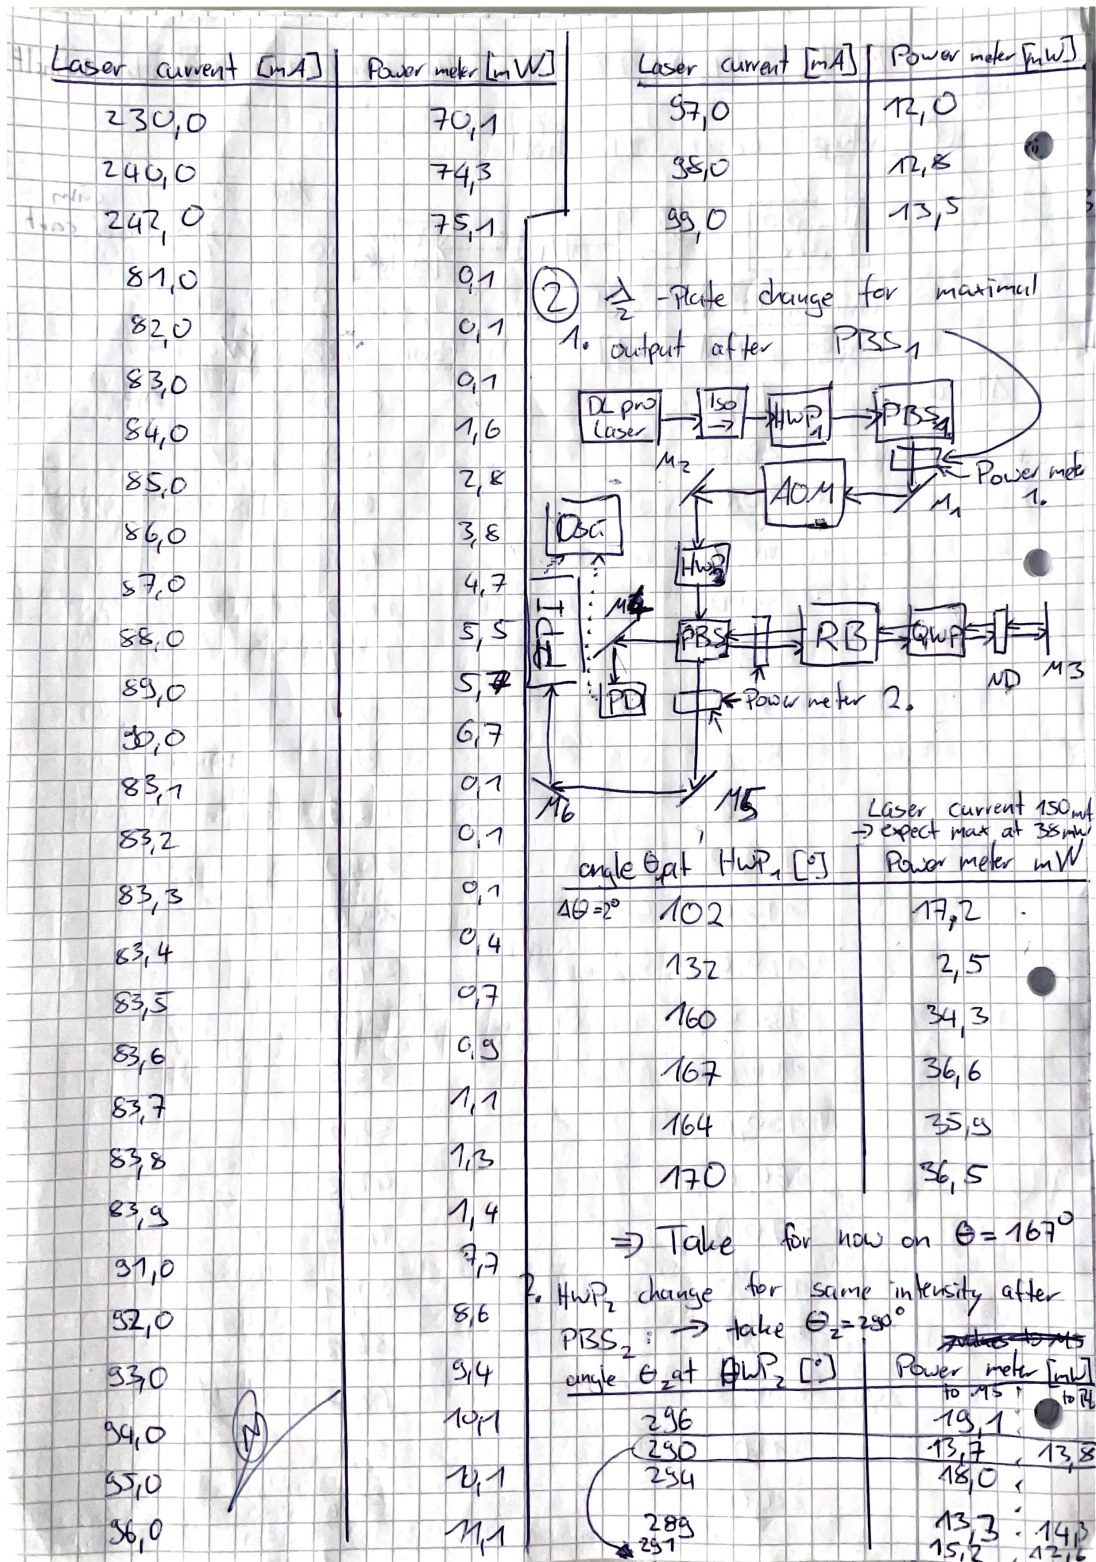 Laser current [mA] Power meter [mW]
230,0 70,1
240,0 74,3
242,0 75,1
81,0 0,1
82,0 0,1
83,0 0,1
84,0 1,6
85,0 2,8
86,0 3,8
87,0 4,7
88,0 5,5
89,0 5,7
90,0 6,7
83,1 0,1
83,2 0,1
83,3 0,1
83,4 0,4
83,5 0,7
83,6 0,9
83,7 1,1
83,8 1,3
83,9 1,4
91,0 7,7
92,0 8,6
93,0 9,4
94,0 10,1
95,0 10,1
96,0 11,1
Laser current [mA] Power meter [mW]
97,0 12,0
98,0 12,8
99,0 13,5
② λ/2 -Plate change for maximal
1. output after PBS1
DL pro Laser
Iso →
HWP1
PBS1
Power meter 1.
M1
AOM
M2
Osci
HWP2
FPI
M4
PBS
RB
QWP
ND
M3
PD
Power meter 2.
M6
M5
Laser current 150mA
→ expect max at 38mW
angle θ1 at HWP1 [°] Power meter mW
Δθ=2° 102 17,2
132 2,5
160 34,3
167 36,6
164 35,9
170 36,5
⇒ Take for now on θ = 167°
2. HWP2 change for same intensity after
PBS2: → take θ2=290°
angle θ2 at HWP2 [°] Power meter [mW]
to M5
296 19,1
290 13,7 13,8
294 18,0
289 13,3 14,3
291 15,2 12,6